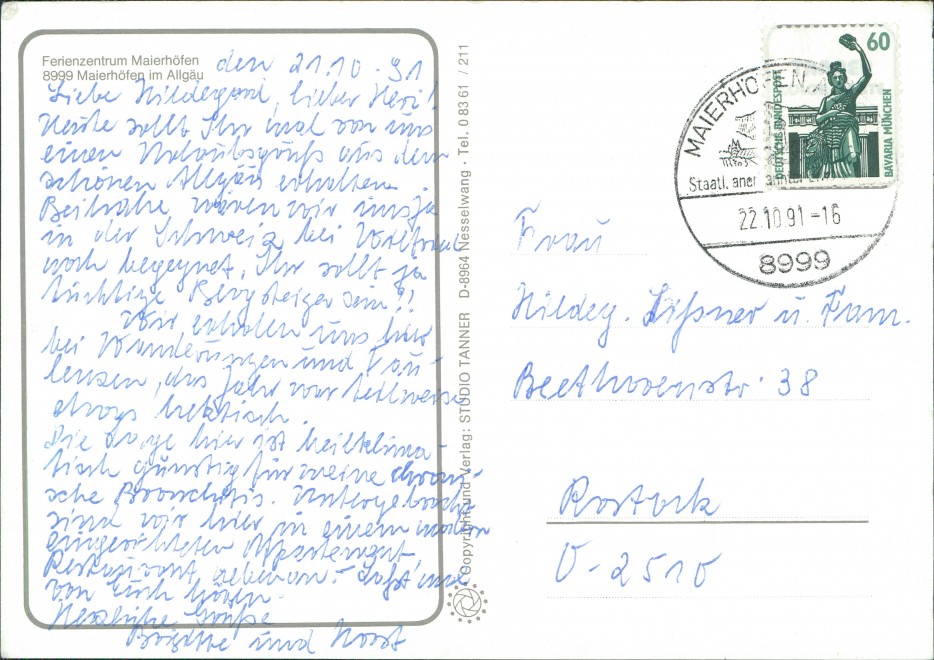 Ferienzentrum Maierhöfen
8999 Maierhöfen im Allgäu
den 21.10.91
Liebe Hildegard, lieber Heri!
Heute sollt Ihr mal von uns
einen Urlaubsgruß aus dem
schönen Allgäu erhalten.
Beinahe wären wir uns ja
in der Schweiz bei Wilfried
noch begegnet, Ihr sollt ja
tüchtige Bergsteiger sein!!
Wir erholen uns hier
bei Wanderungen und Fau-
lenzen, das Jahr war teilweise
etwas hektisch.
Die Lage hier ist heilklima-
tisch günstig für meine chroni-
sche Bronchitis. Untergebracht
sind wir hier in einem modern
eingerichteten Appartement
Restaurant nebenan. - Laßt mal
von Euch hören.
Herzliche Grüße
Brigitte und Horst
Copyright und Verlag: STUDIO TANNER D-8964 Nesselwang · Tel. 0 83 61 / 211
60
DEUTSCHE BUNDESPOST
BAVARIA MÜNCHEN
MAIERHÖFEN
Staatl. aner
22.10.91-16
8999
Frau
Hildeg. Lißner u. Fam.
Beethovenstr. 38
Rostock
O-2510